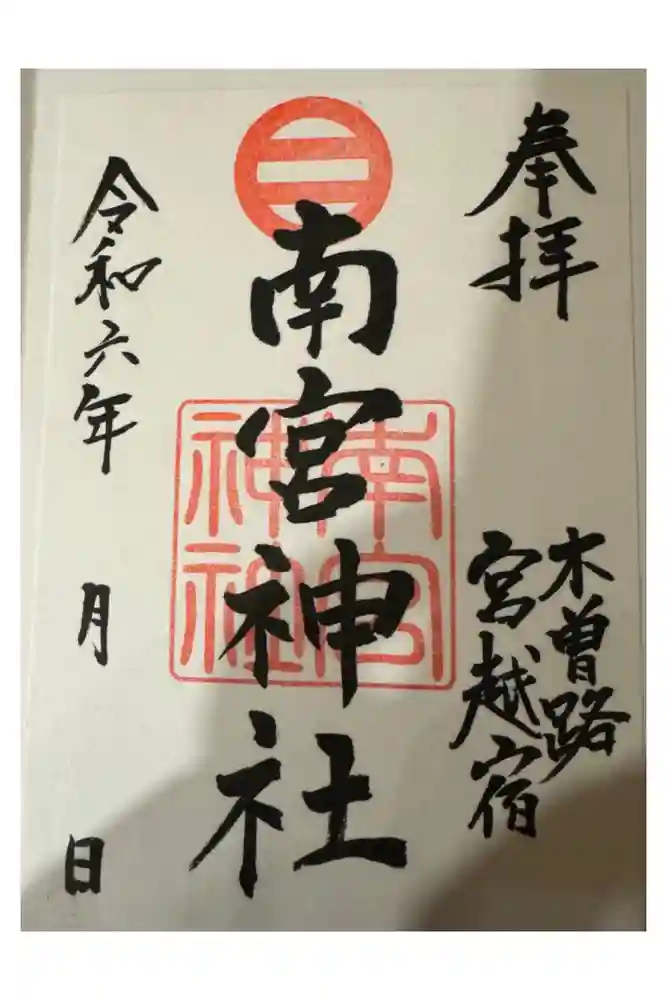 奉拝
木曽路
宮越宿
南宮神社
南宮
神社
令和六年 月 日